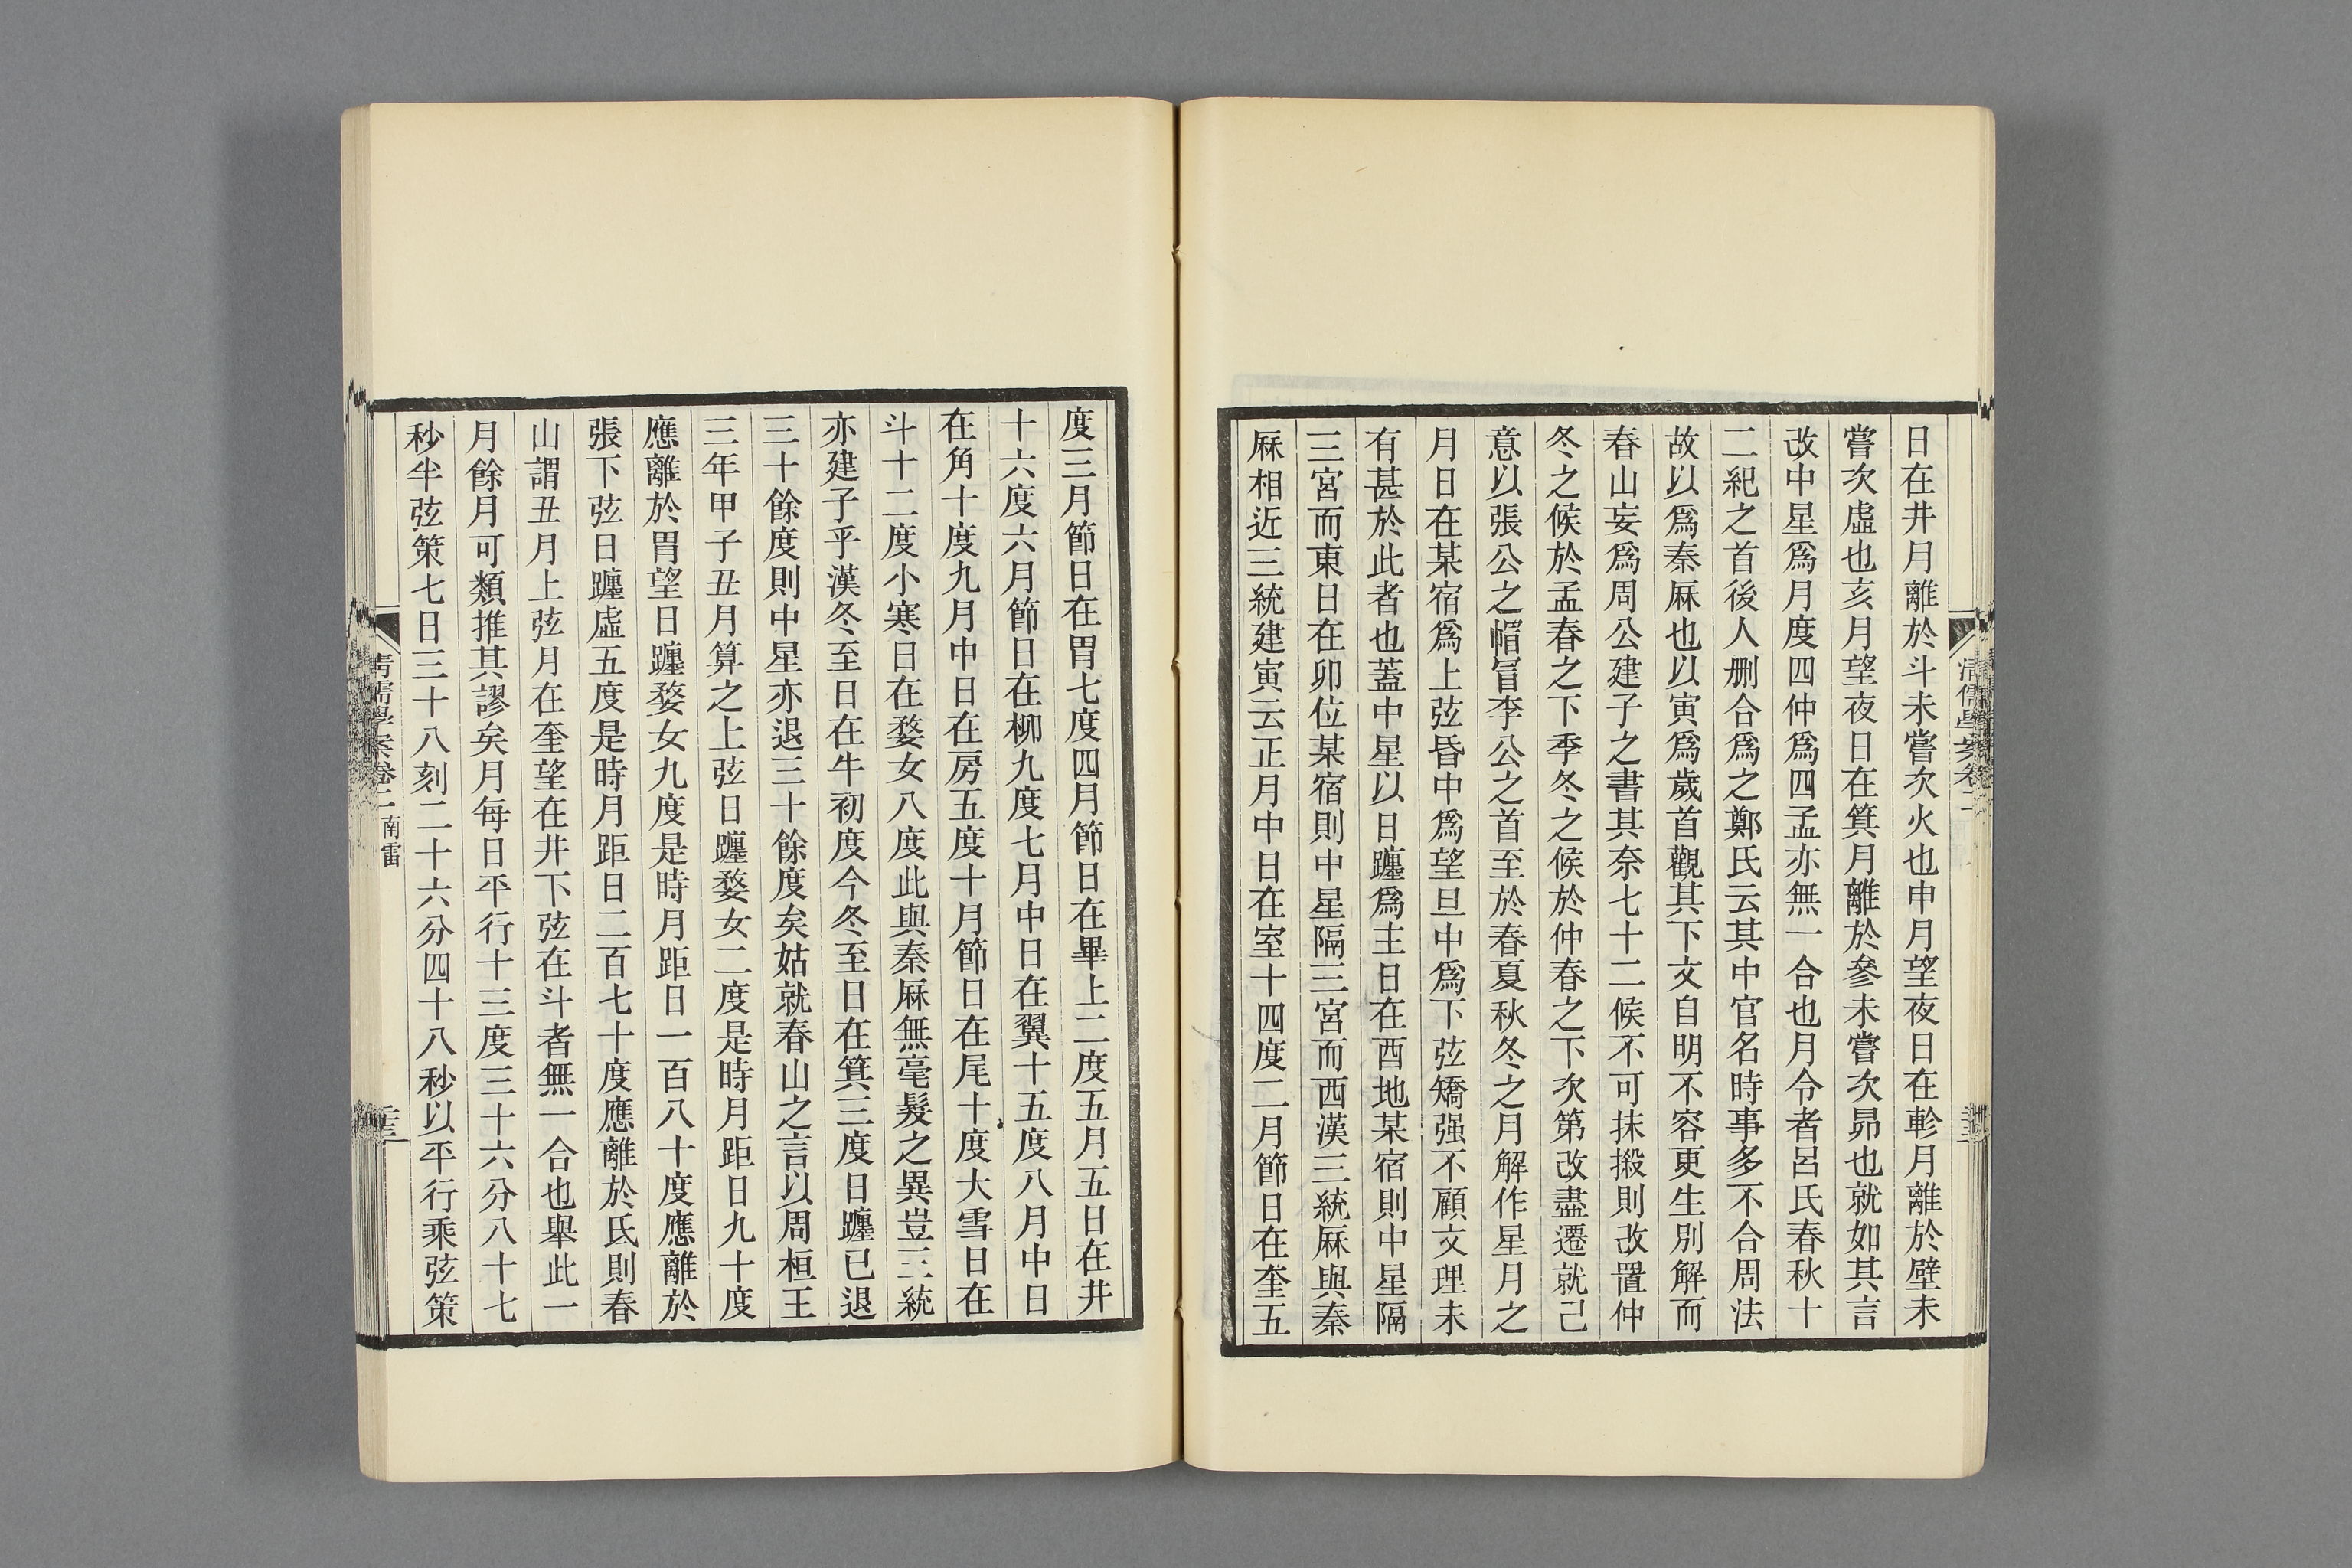 日在井月離於斗未嘗次火也申月望夜日在軫月離於壁未
嘗次虛也亥月望夜日在箕月離於參未嘗次昴也就如其言
改中星爲月度四仲爲四孟亦無一合也月令者呂氏春秋十
二紀之首後人刪合爲之鄭氏云其中官名時事多不合周法
故以爲秦厤也以寅爲歲首觀其下文自明不容更生別解而
春山妄爲周公建子之書其奈七十二候不可抹摋則改置仲
冬之候於孟春之下季冬之候於仲春之下次第改盡遷就己
意以張公之帽冒李公之首至於春夏秋冬之月解作星月之
月日在某宿爲上弦昏中爲望旦中爲下弦矯强不顧文理未
有甚於此者也蓋中星以日躔爲主日在酉地某宿則中星隔
三宮而東日在卯位某宿則中星隔三宮而西漢三統厤與秦
厤相近三統建寅云正月中日在室十四度二月節日在奎五
度三月節日在胃七度四月節日在畢上二度五月五日在井
十六度六月節日在柳九度七月中日在翼十五度八月中日
在角十度九月中日在房五度十月節日在尾十度大雪日在
斗十二度小寒日在婺女八度此與秦厤無毫髮之異豈三統
亦建子乎漢冬至日在牛初度今冬至日在箕三度日躔已退
三十餘度則中星亦退三十餘度矣姑就春山之言以周桓王
三年甲子丑月算之上弦日躔婺女二度是時月距日九十度
應離於胃望日躔婺女九度是時月距日一百八十度應離於
張下弦日躔虛五度是時月距日二百七十度應離於氐則春
山謂丑月上弦月在奎望在井下弦在斗者無一合也舉此一
月餘月可類推其謬矣月每日平行十三度三十六分八十七
秒半弦策七日三十八刻二十六分四十八秒以平行乘弦策
清儒學案卷二 南雷